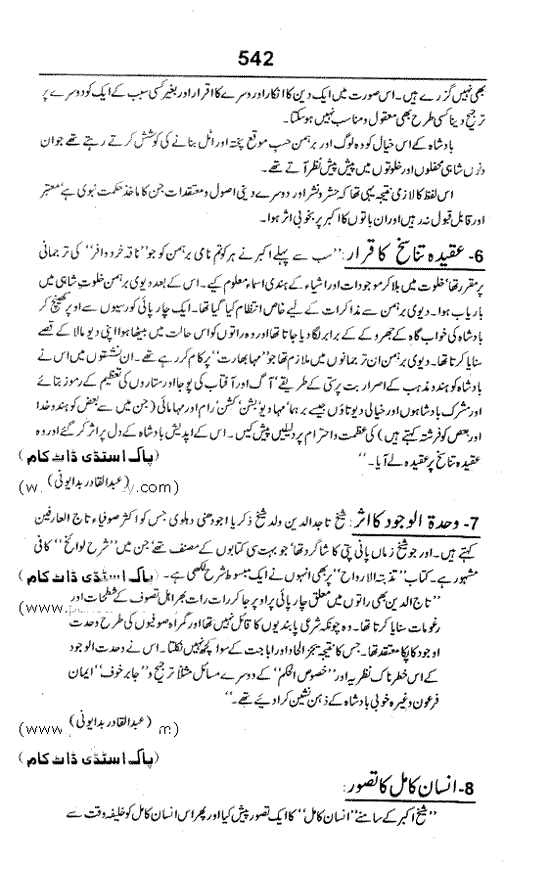 542
بھی نہیں گزرے ہیں۔ اس صورت میں ایک دین کا انکار اور دوسرے کا اقرار اور بغیر کسی سبب کے ایک کو دوسرے پر
ترجیح دینا کسی طرح بھی معقول و مناسب نہیں ہوسکتا۔
بادشاہ کے اس خیال کو وہ لوگ اور برہمن حسب موقع پختہ اور اٹل بنانے کی کوشش کرتے رہتے تھے جو ان
دنوں شاہی محفلوں اور خلوتوں میں پیش پیش نظر آتے تھے۔
اس لفظ کا لازمی نتیجہ یہی تھا کہ حشر و نشر اور دوسرے دینی اصول و معتقدات جن کا ماخذ حکمت نبوی ہے معتبر
اور قابل قبول نہ رہیں اور ان باتوں کا اکبر پر بخوبی اثر ہوا۔
6- عقیدہ تناسخ کا قرار: ''سب سے پہلے اکبر نے ہرکوتم نامی برہمن کو جو ''نافہ خرد وافر'' کی ترجمانی
پر مقرر تھا' خلوت میں بلا کر موجودات اور اشیاء کے ہندی اسماء معلوم کیے۔ اس کے بعد دیوی برہمن خلوت شاہی میں
باریاب ہوا۔ دیوی برہمن سے مذاکرات کے لیے خاص انتظام کیا گیا تھا۔ ایک چارپائی کو رسیوں سے اوپر کھینچ کر
بادشاہ کی خواب گاہ کے جھروکے کے برابر لگا دیا جاتا تھا اور وہ راتوں کو اس حالت میں بیٹھا ہوا اپنی دیو مالا کے قصے
سنایا کرتا تھا۔ دیوی برہمن ان ترجمانوں میں ملازم تھا جو ''مہابھارت'' پر کام کر رہے تھے۔ ان نشستوں میں اس نے
بادشاہ کو ہندو مذہب کے اسرار بت پرستی کے طریقے' آگ اور آفتاب کی پوجا اور ستاروں کی تعظیم کے رموز بتائے
اور مشرک بادشاہوں اور خیالی دیوتاؤں جیسے برہما' مہادیو' بشن' کشن' رام اور مہامائی (جن میں سے بعض کو ہندو خدا
اور بعض کو فرشتہ کہتے ہیں) کی عظمت و احترام پر دلیلیں پیش کیں۔ اس کے اپدیش بادشاہ کے دل پر اثر کر گئے اور وہ
عقیدہ تناسخ پر عقیدہ لے آیا۔'' (پاک اسٹڈی ڈاٹ کام)
(w. (عبدالقادر بدایونی) y.com)
7- وحدۃ الوجود کا اثر: شیخ تاجدالدین ولد شیخ ذکریا اجودھنی دہلوی جس کو اکثر صوفیاء تاج العارفین
کہتے ہیں۔ اور جو شیخ زماں پانی پتی کا شاگرد تھا' جو بہت سی کتابوں کے مصنف تھے جن میں ''شرح لوائح'' کافی
مشہور ہے۔ کتاب ''نذہۃ الارواح'' پر بھی انہوں نے ایک مبسوط شرح لکھی ہے۔ (پاک اسٹڈی ڈاٹ کام)
''تاج الدین بھی راتوں میں معلق چارپائی پر اوپر جا کر رات رات بھر اہل تصوف کے شطحات اور (www.
رغومات سنایا کرتا تھا۔ وہ چونکہ شرعی پابندیوں کا قائل نہیں تھا اور گمراہ صوفیوں کی طرح وحدت
الوجود کا پکا معتقد تھا۔ جس کا نتیجہ بجز الحاد اور اباحت کے سوا کچھ نہیں نکلتا۔ اس نے وحدت الوجود
کے اس خطرناک نظریہ اور ''خصوص الحکم'' کے دوسرے مسائل مثلاً ترجیح و ''جابر خوف'' ایمان
فرعون وغیرہ خوبی بادشاہ کے ذہن نشین کرا دیے تھے۔''
(www. (عبدالقادر بدایونی) m)
(پاک اسٹڈی ڈاٹ کام)
8- انسان کامل کا تصور:
''شیخ اکبر کے سامنے ''انسان کامل'' کا ایک تصور پیش کیا اور پھر اس انسان کامل کو خلیفہ وقت سے